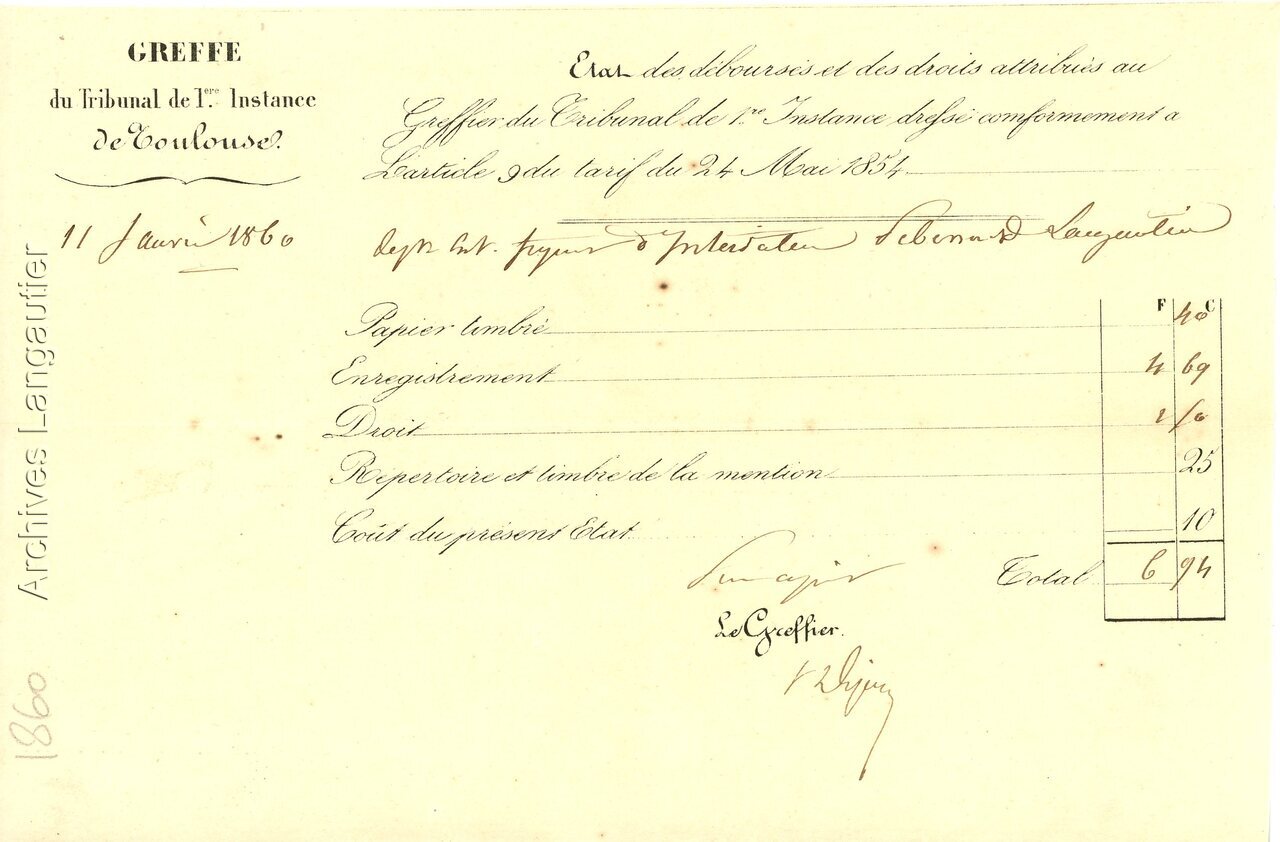 GREFFE
du Tribunal de 1.ere Instance
de Toulouse.
Etat des déboursés et des droits attribués au
Greffier du Tribunal de 1.re Instance dressé comformement a
L'article 9 du tarif du 24 Mai 1854
11 Janvier 1860
F C
Papier timbré 40
Enregistrement 4 69
Droit 1 50
Répertoire et timbre de la mention 25
Coût du présent Etat 10
Total 6 94
Le Greffier.
Archives Langautier
1860